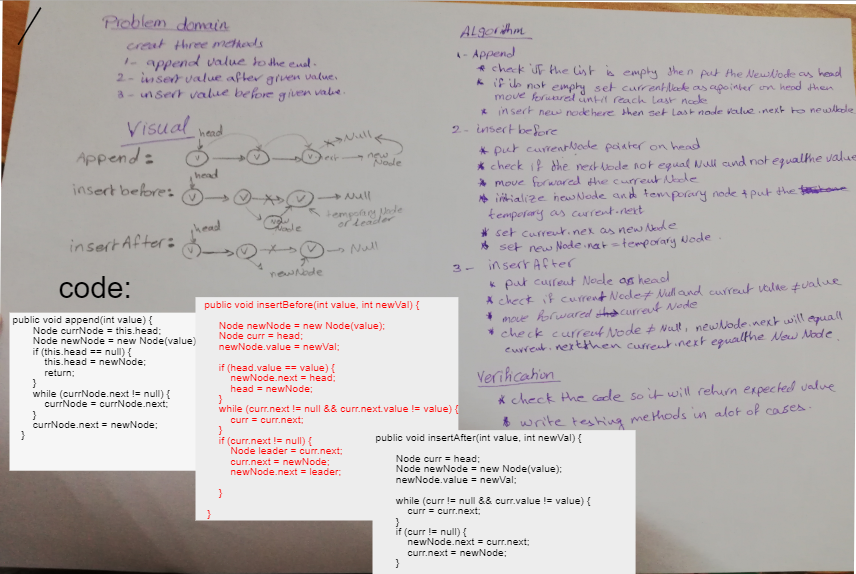 Problem domain
creat three methods
1- append value to the end.
2- insert value after given value.
3- insert value before given value.
Visual
Append:
head
V
V
V
Null
new Node
insert before:
head
V
V
V
Null
new Node
temporary Node
or Leader
insert After:
head
V
V
V
Null
newNode
code:
public void append(int value) {
Node currNode = this.head;
Node newNode = new Node(value)
if (this.head == null) {
this.head = newNode;
return;
}
while (currNode.next != null) {
currNode = currNode.next;
}
currNode.next = newNode;
}
public void insertBefore(int value, int newVal) {
Node newNode = new Node(value);
Node curr = head;
newNode.value = newVal;
if (head.value == value) {
newNode.next = head;
head = newNode;
}
while (curr.next != null && curr.next.value != value) {
curr = curr.next;
}
if (curr.next != null) {
Node leader = curr.next;
curr.next = newNode;
newNode.next = leader;
}
}
public void insertAfter(int value, int newVal) {
Node curr = head;
Node newNode = new Node(value);
newNode.value = newVal;
while (curr != null && curr.value != value) {
curr = curr.next;
}
if (curr != null) {
newNode.next = curr.next;
curr.next = newNode;
}
Algorithm
1- Append
* check if the list is empty then put the NewNode as head
* if it not empty set currentNode as apointer on head then
move forwared until reach Last node
* insert new node here then set Last node value.next to newNode
2- insert before
* put currentNode pointer on head
* check if the nextNode not equal Null and not equal the value
* move forwared the current Node
* initialize newNode and temporary node & put the
temporary as current.next
* set current.nex as newNode
* set newNode.next = temporary Node.
3- insert After
* put current Node as head
* check if current Node ≠ Null and current value ≠ value
* move forwared current Node
* check current Node ≠ Null, newNode.next will equall
current.next then current.next equal the New Node.
Verification
* check the code so it will return expected value
* write testing methods in alot of cases.